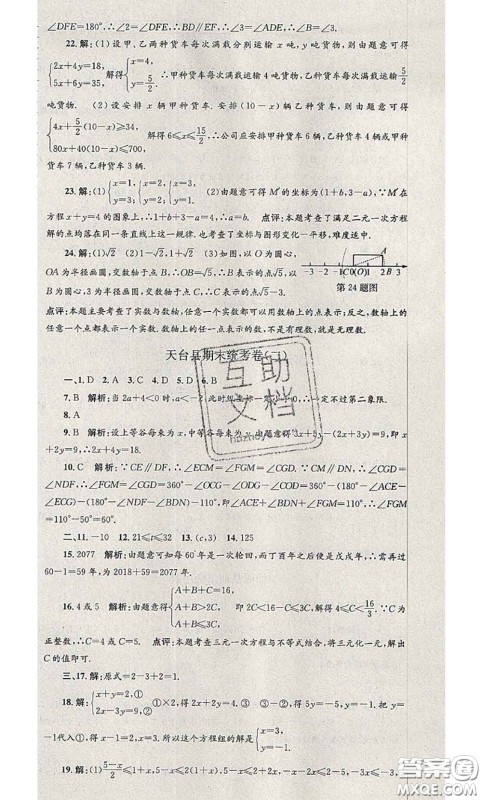 ∠DFE=180°.∴∠2=∠DFE.∴∠3=∠ADE,∠B=∠3.∴∠ADE=∠B.
22.解:(1)设甲、乙两种货车每次满载分别运输 x 吨,y 吨货物,则由题意可得
{2x+4y=18, 5x+6y=35, 解得{x=4, y=5/2. ∴甲种货车每次满载运输 4 吨,乙种货车每次满载运输 5/2
吨货物. (2)设安排 x 辆甲种货车.安排(10-x)辆乙种货车.则由题意可得
{4x+5/2(10-x)≥34, 80x+40(10-x)≤700, 解得 6≤x≤15/2.∴公司应安排甲种货车 6 辆,乙种货车 4 辆或甲种
货车 7 辆,乙种货车 3 辆.
23.解:(1){x=1, y=3; {x=2, y=2; {x=3, y=1. (2)由题意可得 M′的坐标为(1+b,3-a),∵M′在
方程 x+y=4 的图象上,∴1+b+3-a=4.∴a=b. 点评:本题考查了满足二元一次方程
解的点均落在同一条直线上这一规律.也考查了坐标与图形变化—平移,难度适中.
24.解:(1)√2 (2)-√2-1,1+√2 (3)如图,以 O 为圆心,
OA 为半径画圆,交数轴于点 B,∴点 B 表示的点为√5,以点
B 为圆心,3 为半径画圆,交数轴于点 C,∴点 C 表示的点√5-3.
-3 -2 -1 C0(O) 1 2 B 3
A
第 24 题图
点评:本题主要考查了实数与数轴,任意一个实数都可以用数轴上的点表示;反之,数轴上的
任意一个点都表示一个实数.数轴上的任一点表示的数,不是有理数,就是无理数.
天台县期末统考卷(一)
一、1.D 2.A 3.C 4.D 5.C 6.C
8.A
9.B 解析:设上等谷每束为 x,中等谷每束为 y.由题意得
+2y=9.
10.C 解析:∵CE∥DF,∴∠ECM=∠FGM=∠CGD.
-∠ECG)-(180°-∠NDF-∠BDN)=110°,∴(∠ACE+∠BDN+∠NDF)-∠FGM
=110°-50°=60°.
二、11.-10 12.21≤t≤32 13.(c,3) 14.125
15.2077 解析:由题意可知每 60 年是一次轮回,而丁酉年之后依次是戊戌年,∴需再过
60-1=59 年,为 2018+59=2077 年.
16.4 或 5 解析:由题意得{A+B+C=16, A+B>2C, A+B≤3C, 即 2C<16-C≤3C,解得 4≤C<16/3.∵C 为
正整数,∴C=4 或 C=5. 点评:本题考查三元一次方程与不等式结合,将三元化一元,解出
C 的值即可.
三、17.解:原式=2-3+2=1.
18.解:{x+y=2,① 2x-3y=9,② ①×2,得 2x+2y=4. ③ ②-③,得-5y=5,y=-1. 把 y=
-1代入①,得 x-1=2,x=3. 所以这个方程组的解是{x=3, y=-1.
19.解:(1)
互助文档
答案圈